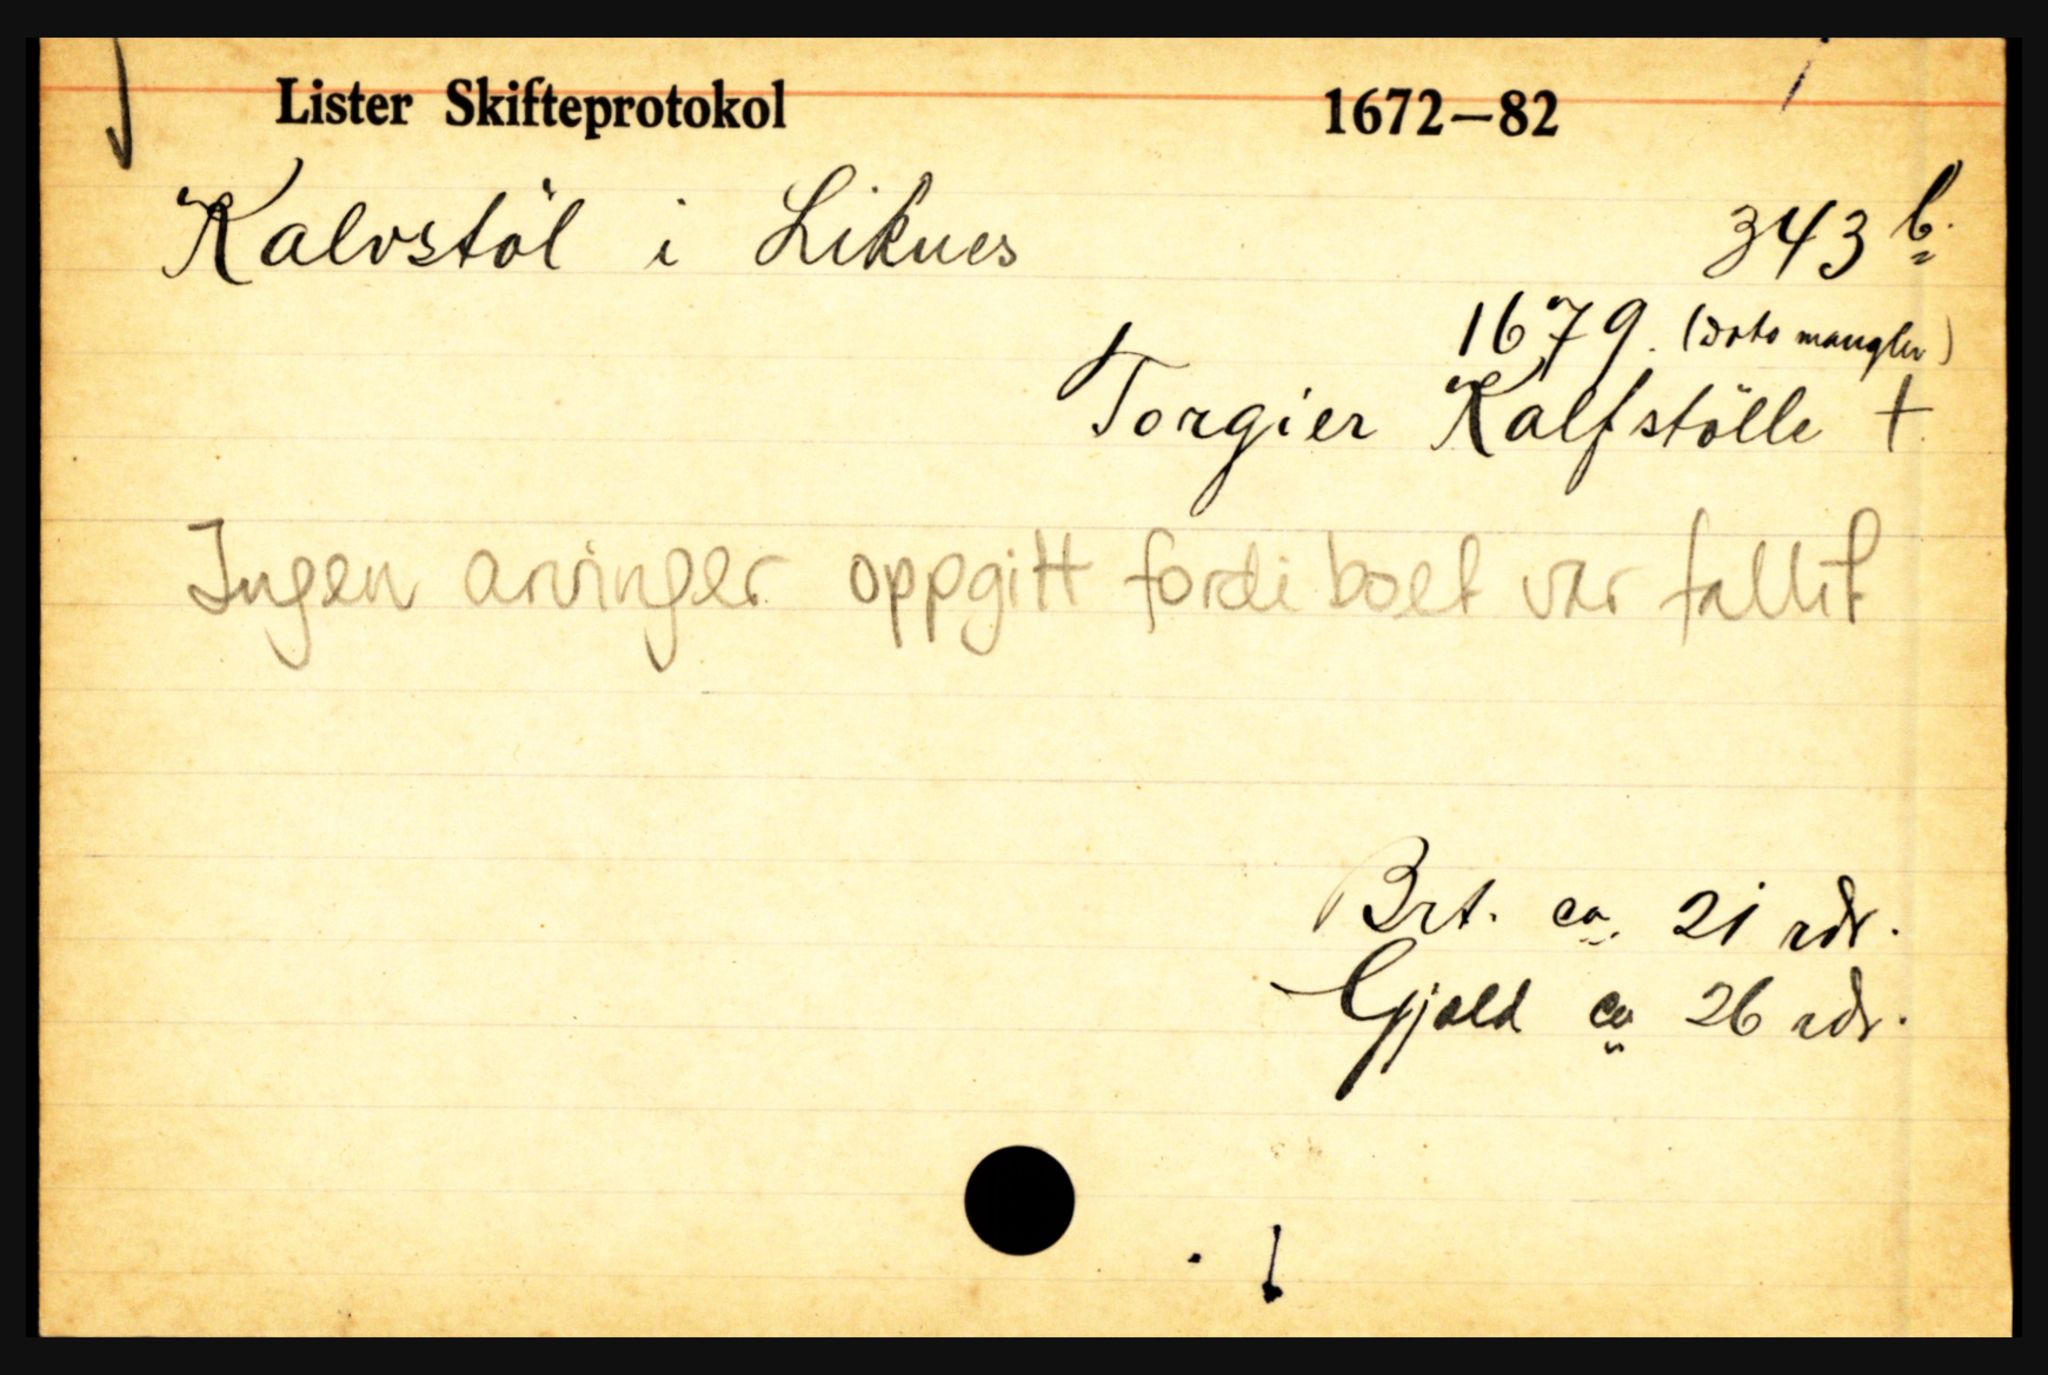 Lister Skifteprotokol 1672–82
Kalvstöl i Liknes 343 b.
1679. (Dato mangler)
Torgier Kalfstölle +
Ingen arvinger oppgitt fordi boet var fallit
Brt. ca. 21 rdr.
Gjæld ca 26 rdr.